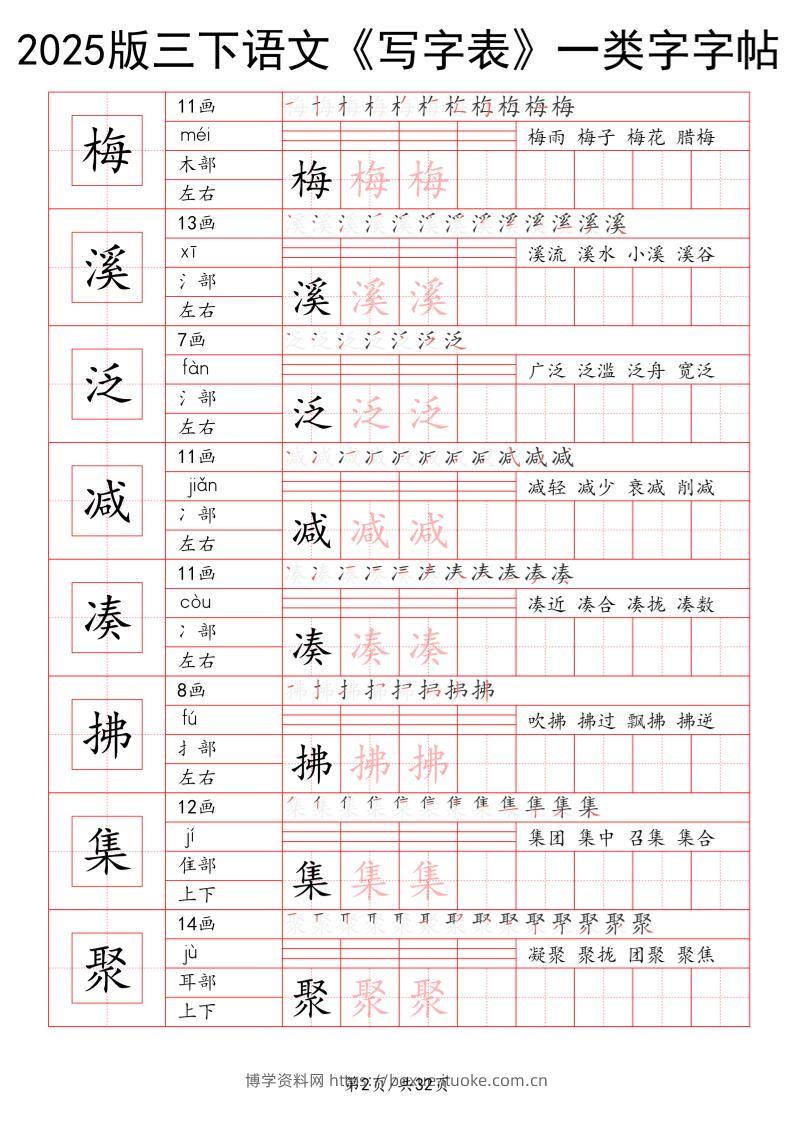 2025版三下语文《写字表》一类字字帖
梅
11画
méi
梅雨 梅子 梅花 腊梅
木部
左右
梅 梅 梅
溪
13画
xī
溪流 溪水 小溪 溪谷
氵部
左右
溪 溪 溪
泛
7画
fàn
广泛 泛滥 泛舟 宽泛
氵部
左右
泛 泛 泛
减
11画
jiǎn
减轻 减少 衰减 削减
冫部
左右
减 减 减
凑
11画
còu
凑近 凑合 凑拢 凑数
冫部
左右
凑 凑 凑
拂
8画
fú
吹拂 拂过 飘拂 拂逆
扌部
左右
拂 拂 拂
集
12画
jí
集团 集中 召集 集合
隹部
上下
集 集 集
聚
14画
jù
凝聚 聚拢 团聚 聚焦
耳部
上下
聚 聚 聚
博学资料网
第2页/共32页